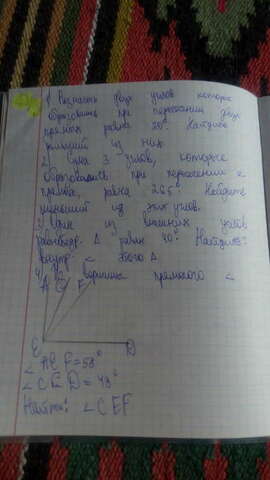 1) Разность двух углов которые
образовались при пересечении двух
прямых равна 20°. Найдите
меньший из них.
2) Сума 3 углов, которые
образовались при пересечении 2
прямых, равна 265° Найдите
меньший из этих углов.
3) Один из внешних углов
равнобедр. Δ равен 40° Найдите
внутр. < этого Δ
4) вершины прямого <
A C F
E D
< A E F = 58°
< C E D = 48°
Найти: < C E F